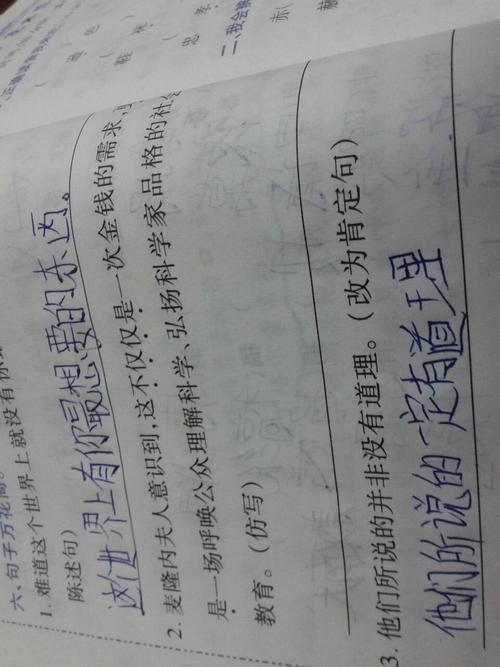 六、句子万花筒。
1. 难道这个世界上就没有你
陈述句)
这世界上有你最想要的东西。
2. 麦隆内夫人意识到,这不仅仅是一次金钱的需求,
是一场呼唤公众理解科学、弘扬科学家品格的社会
教育。(仿写)
3. 他们所说的并非没有道理。(改为肯定句)
他们所说的一定有道理
二、我会
亦(
赫